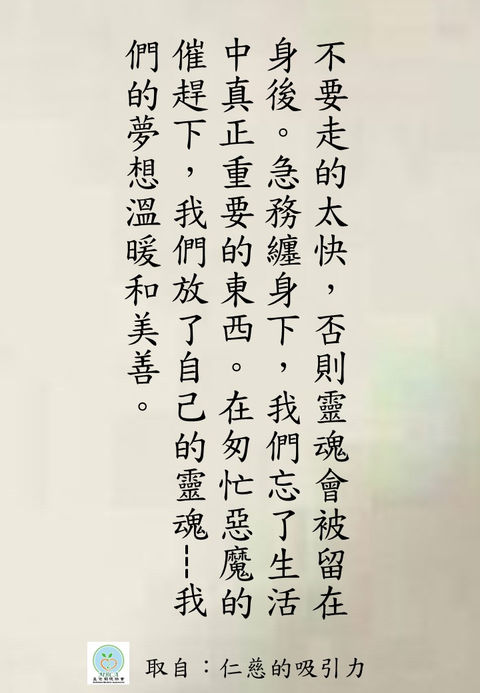 不要走的太快，否則靈魂會被留在
身後。急務纏身下，我們忘了生活
中真正重要的東西。在匆忙惡魔的
催趕下，我們放了自己的靈魂---我
們的夢想溫暖和美善。
取自：仁慈的吸引力